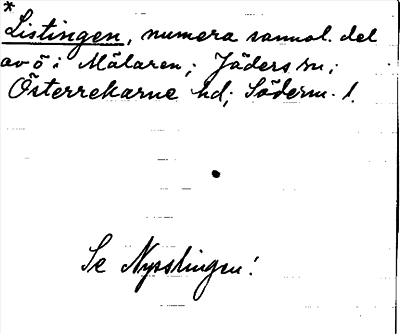 *
Listingen, numera sannol. del
av ö i Mälaren; Jäders sn;
Österrekarne hd; Söderm. l.
Se Nysslingen!